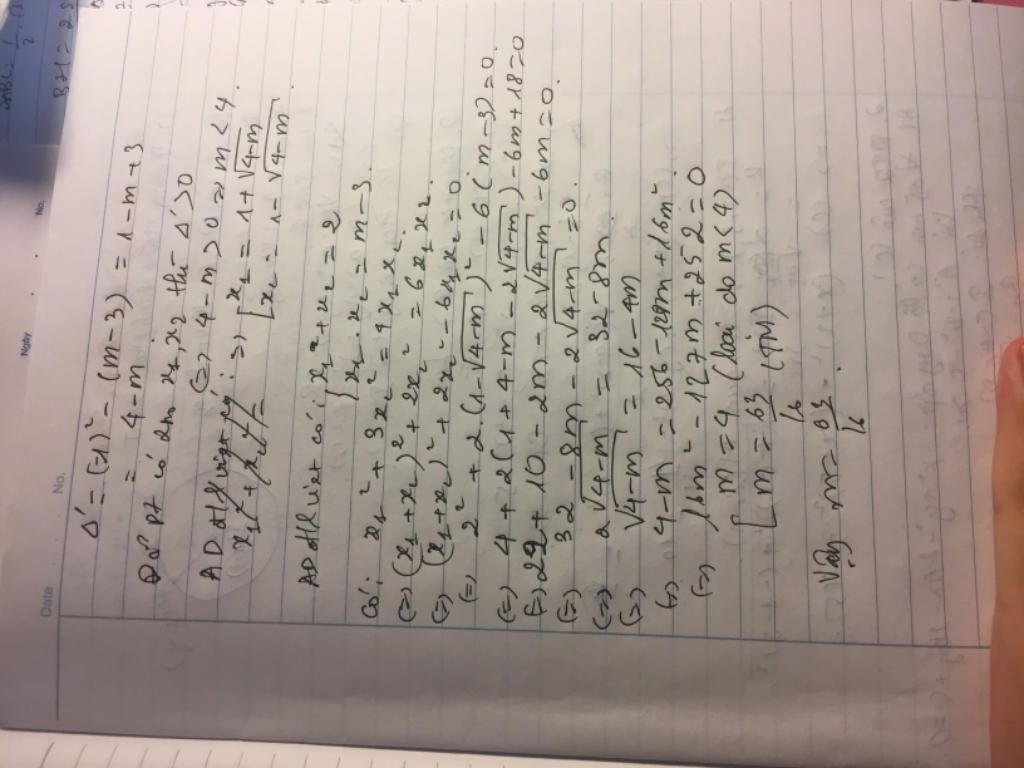 Date No.
Ngày No.
Δ' = (-1)² - (m-3) = 1 - m + 3
= 4 - m
Để pt có 2n x₁, x₂ thì Δ' > 0
(=) 4 - m > 0 => m < 4.
=> [x₁ = 1 + √4-m
[x₂ = 1 - √4-m
AD đl Viet có: { x₁ + x₂ = 2
{ x₁ . x₂ = m - 3.
Có: x₁² + 3x₂² = 4x₁x₂.
(=) (x₁+x₂)² + 2x₂² = 6x₁x₂.
(=) (x₁+x₂)² + 2x₂² - 6x₁x₂ = 0.
(=) 2² + 2.(1-√4-m)² - 6(m-3) = 0.
(=) 4 + 2(1 + 4 - m - 2√4-m) - 6m + 18 = 0
(=) 22 + 10 - 2m - 2√4-m - 6m = 0.
(=) 32 - 8m - 2√4-m = 0.
(=) 2√4-m = 32 - 8m.
(=) √4-m = 16 - 4m
(=) 4-m = 256 - 128m + 16m²
(=) 16m² - 127m + 252 = 0
[m = 4 (loại do m < 4)
[m = 63/16 (TM)
Vậy m = 63/16.